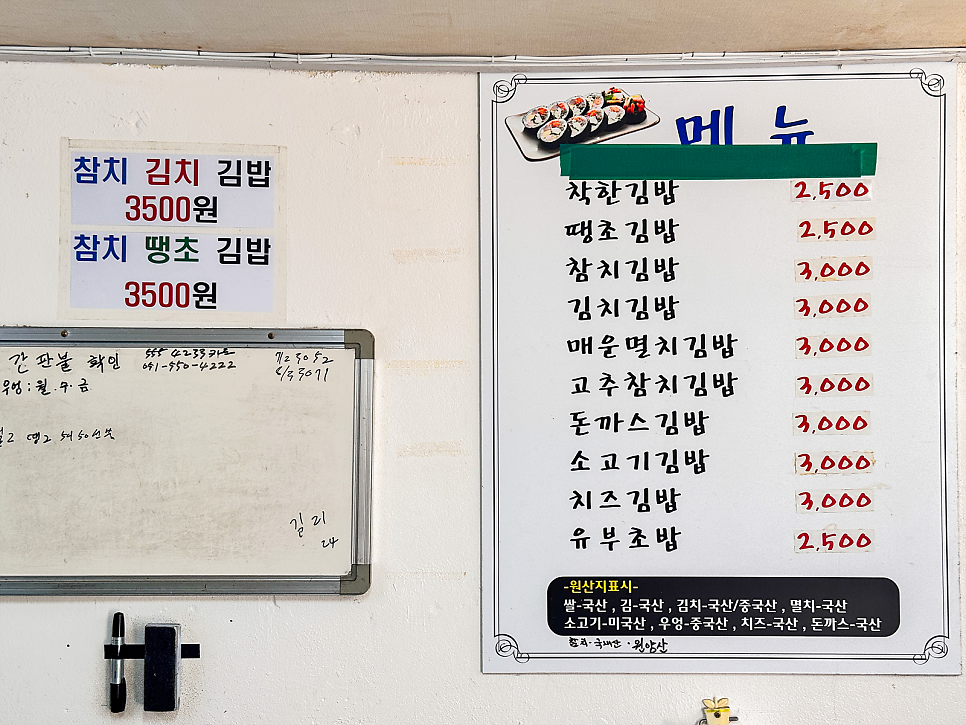 참치 김치 김밥
3500원
참치 땡초 김밥
3500원
간판불 확인
051-950-4222
우엉 : 월.수.금
24
메뉴
착한김밥 2,500
땡초김밥 2,500
참치김밥 3,000
김치김밥 3,000
매운멸치김밥 3,000
고추참치김밥 3,000
돈까스김밥 3,000
소고기김밥 3,000
치즈김밥 3,000
유부초밥 2,500
-원산지표시-
쌀-국산 , 김-국산 , 김치-국산/중국산 , 멸치-국산
소고기-미국산 , 우엉-중국산 , 치즈-국산 , 돈까스-국산
원양산